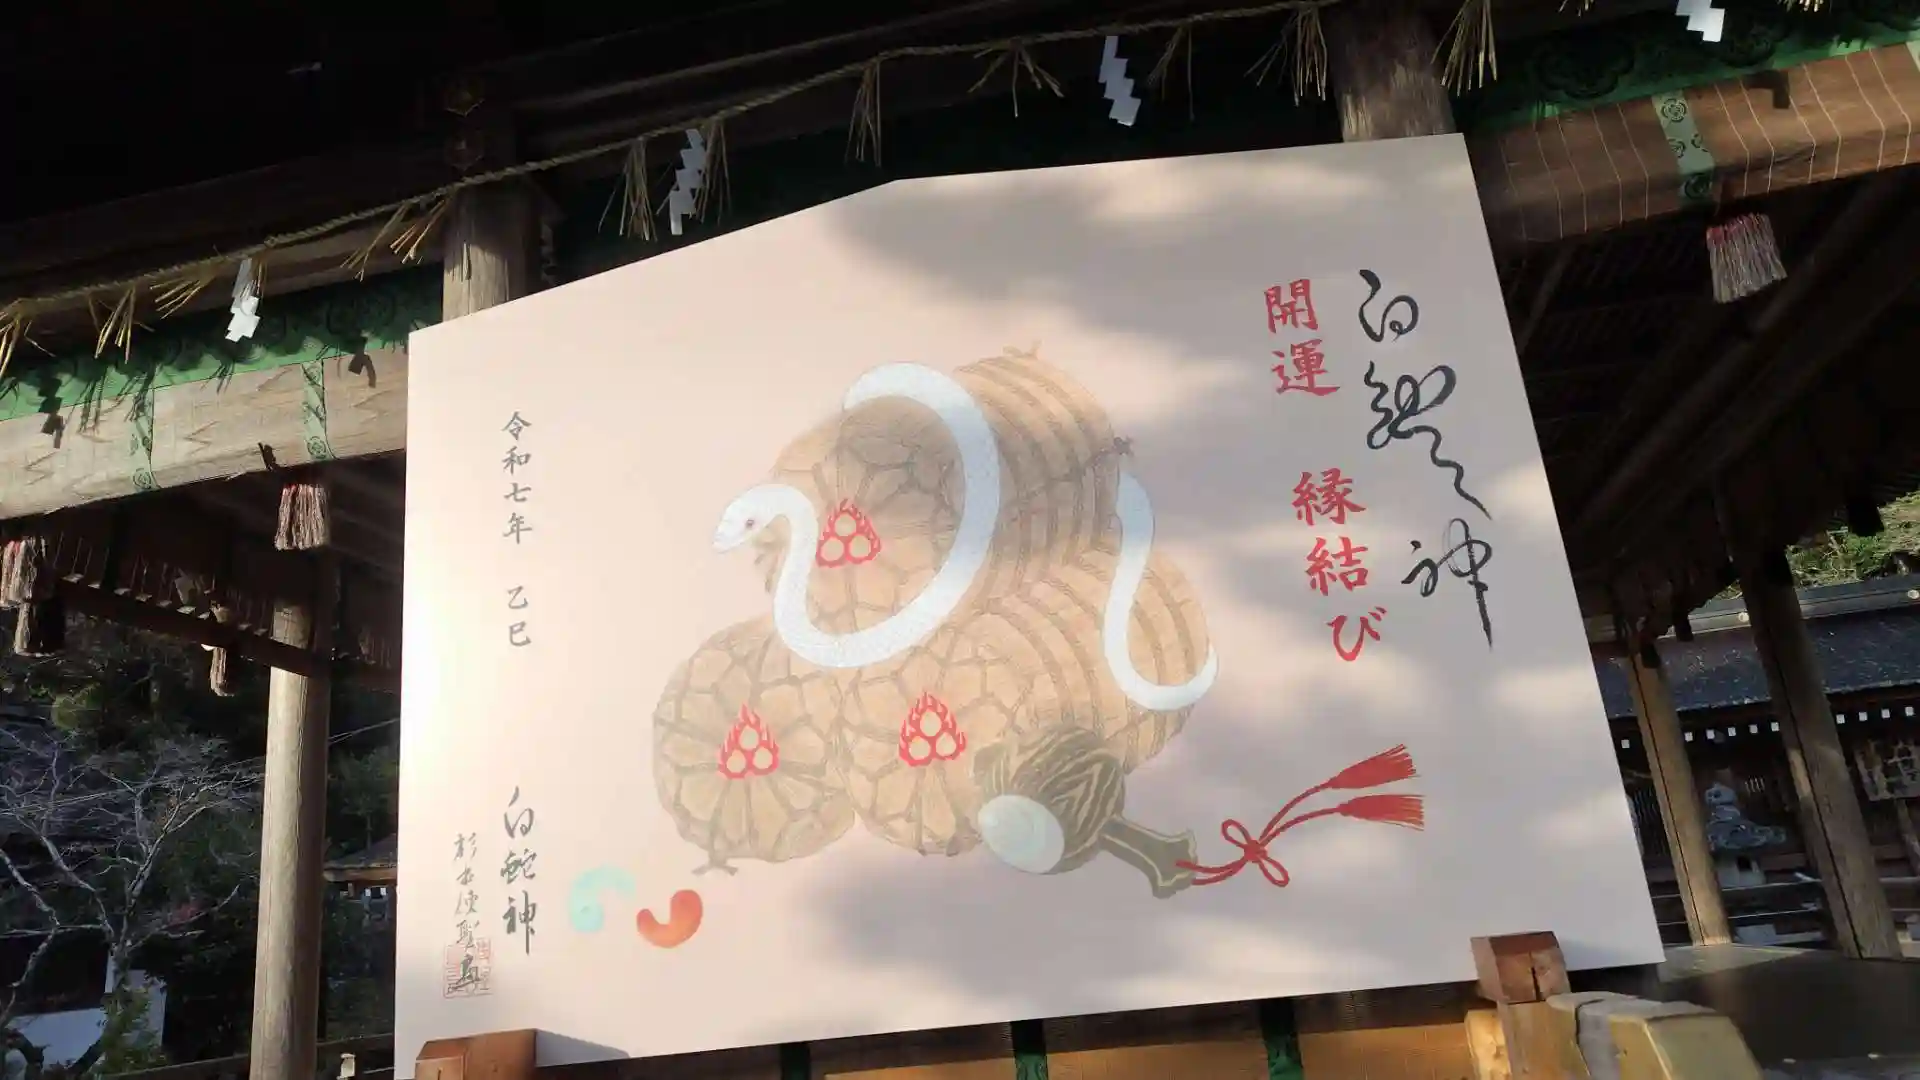 白蛇神
開運 縁結び
令和七年 乙巳
白蛇神